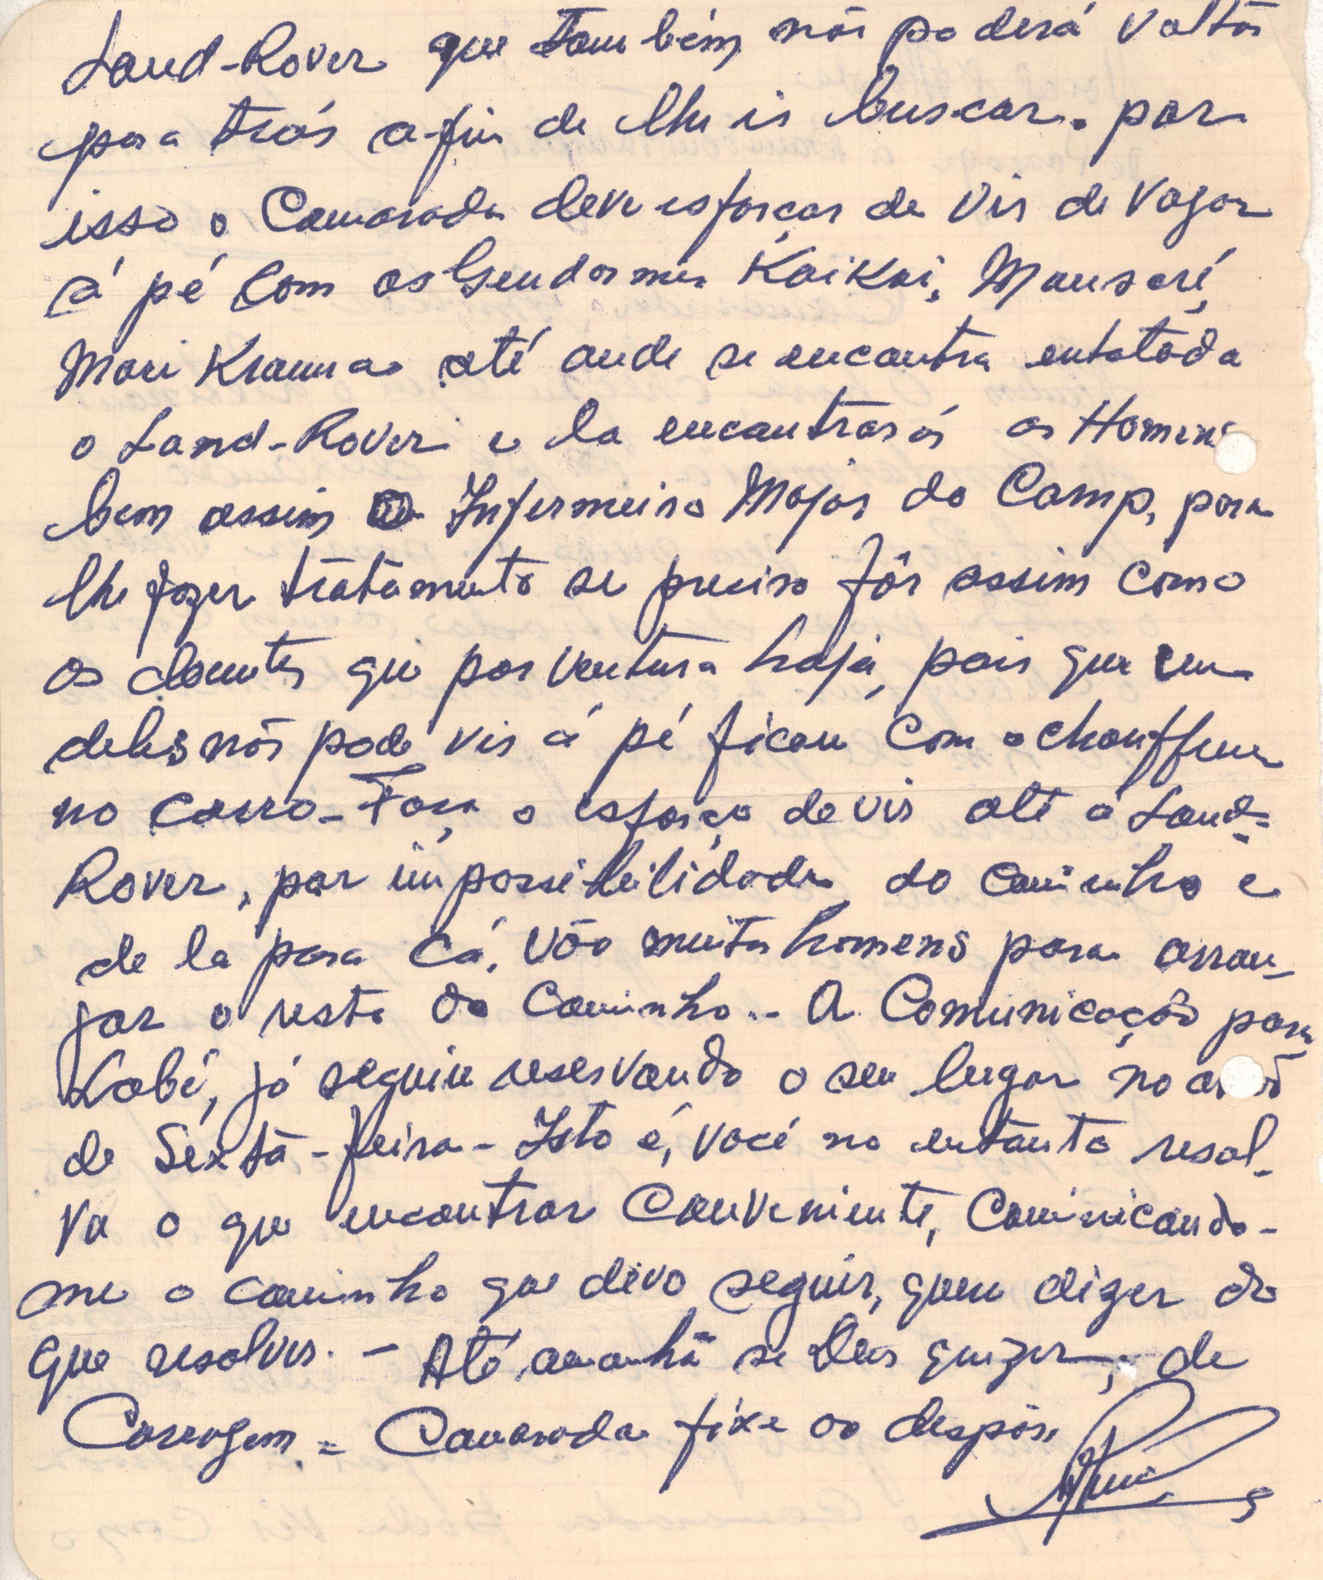 Land-Rover que tambem não poderá voltar
para trás a-fim de lhe ir buscar. por
isso o Camarada deve esforçar de vir de vagar
á pé com os Gendarmes KaiKai, Mansaré,
Mari Krauma até onde se encontra entatada
o Land-Rover e la encontrarás os Homens
bem assim o Infermeiro Major do Camp, para
lhe fazer tratamento se preciso fôr assim como
os doentes que por ventura haja, pois que um
deles não pode vir á pé ficou com o chauffeur
no carro - Faça o esforço de vir até o Land-
Rover, por impossibilidade do caminho e
de la para cá, vão muitos homens para arran-
jar o resto do caminho. - A Comunicação para
Labé, já seguiu reservando o seu lugar no avião
de Sexta-feira - Isto é, você no entanto resol-
va o que encontrar conveniente, comunicando-
me o caminho que devo seguir, quero dizer do
que resolver. - Até amanhã se Deus quizer, de
Coragem = Camarada fixe ao dispôr